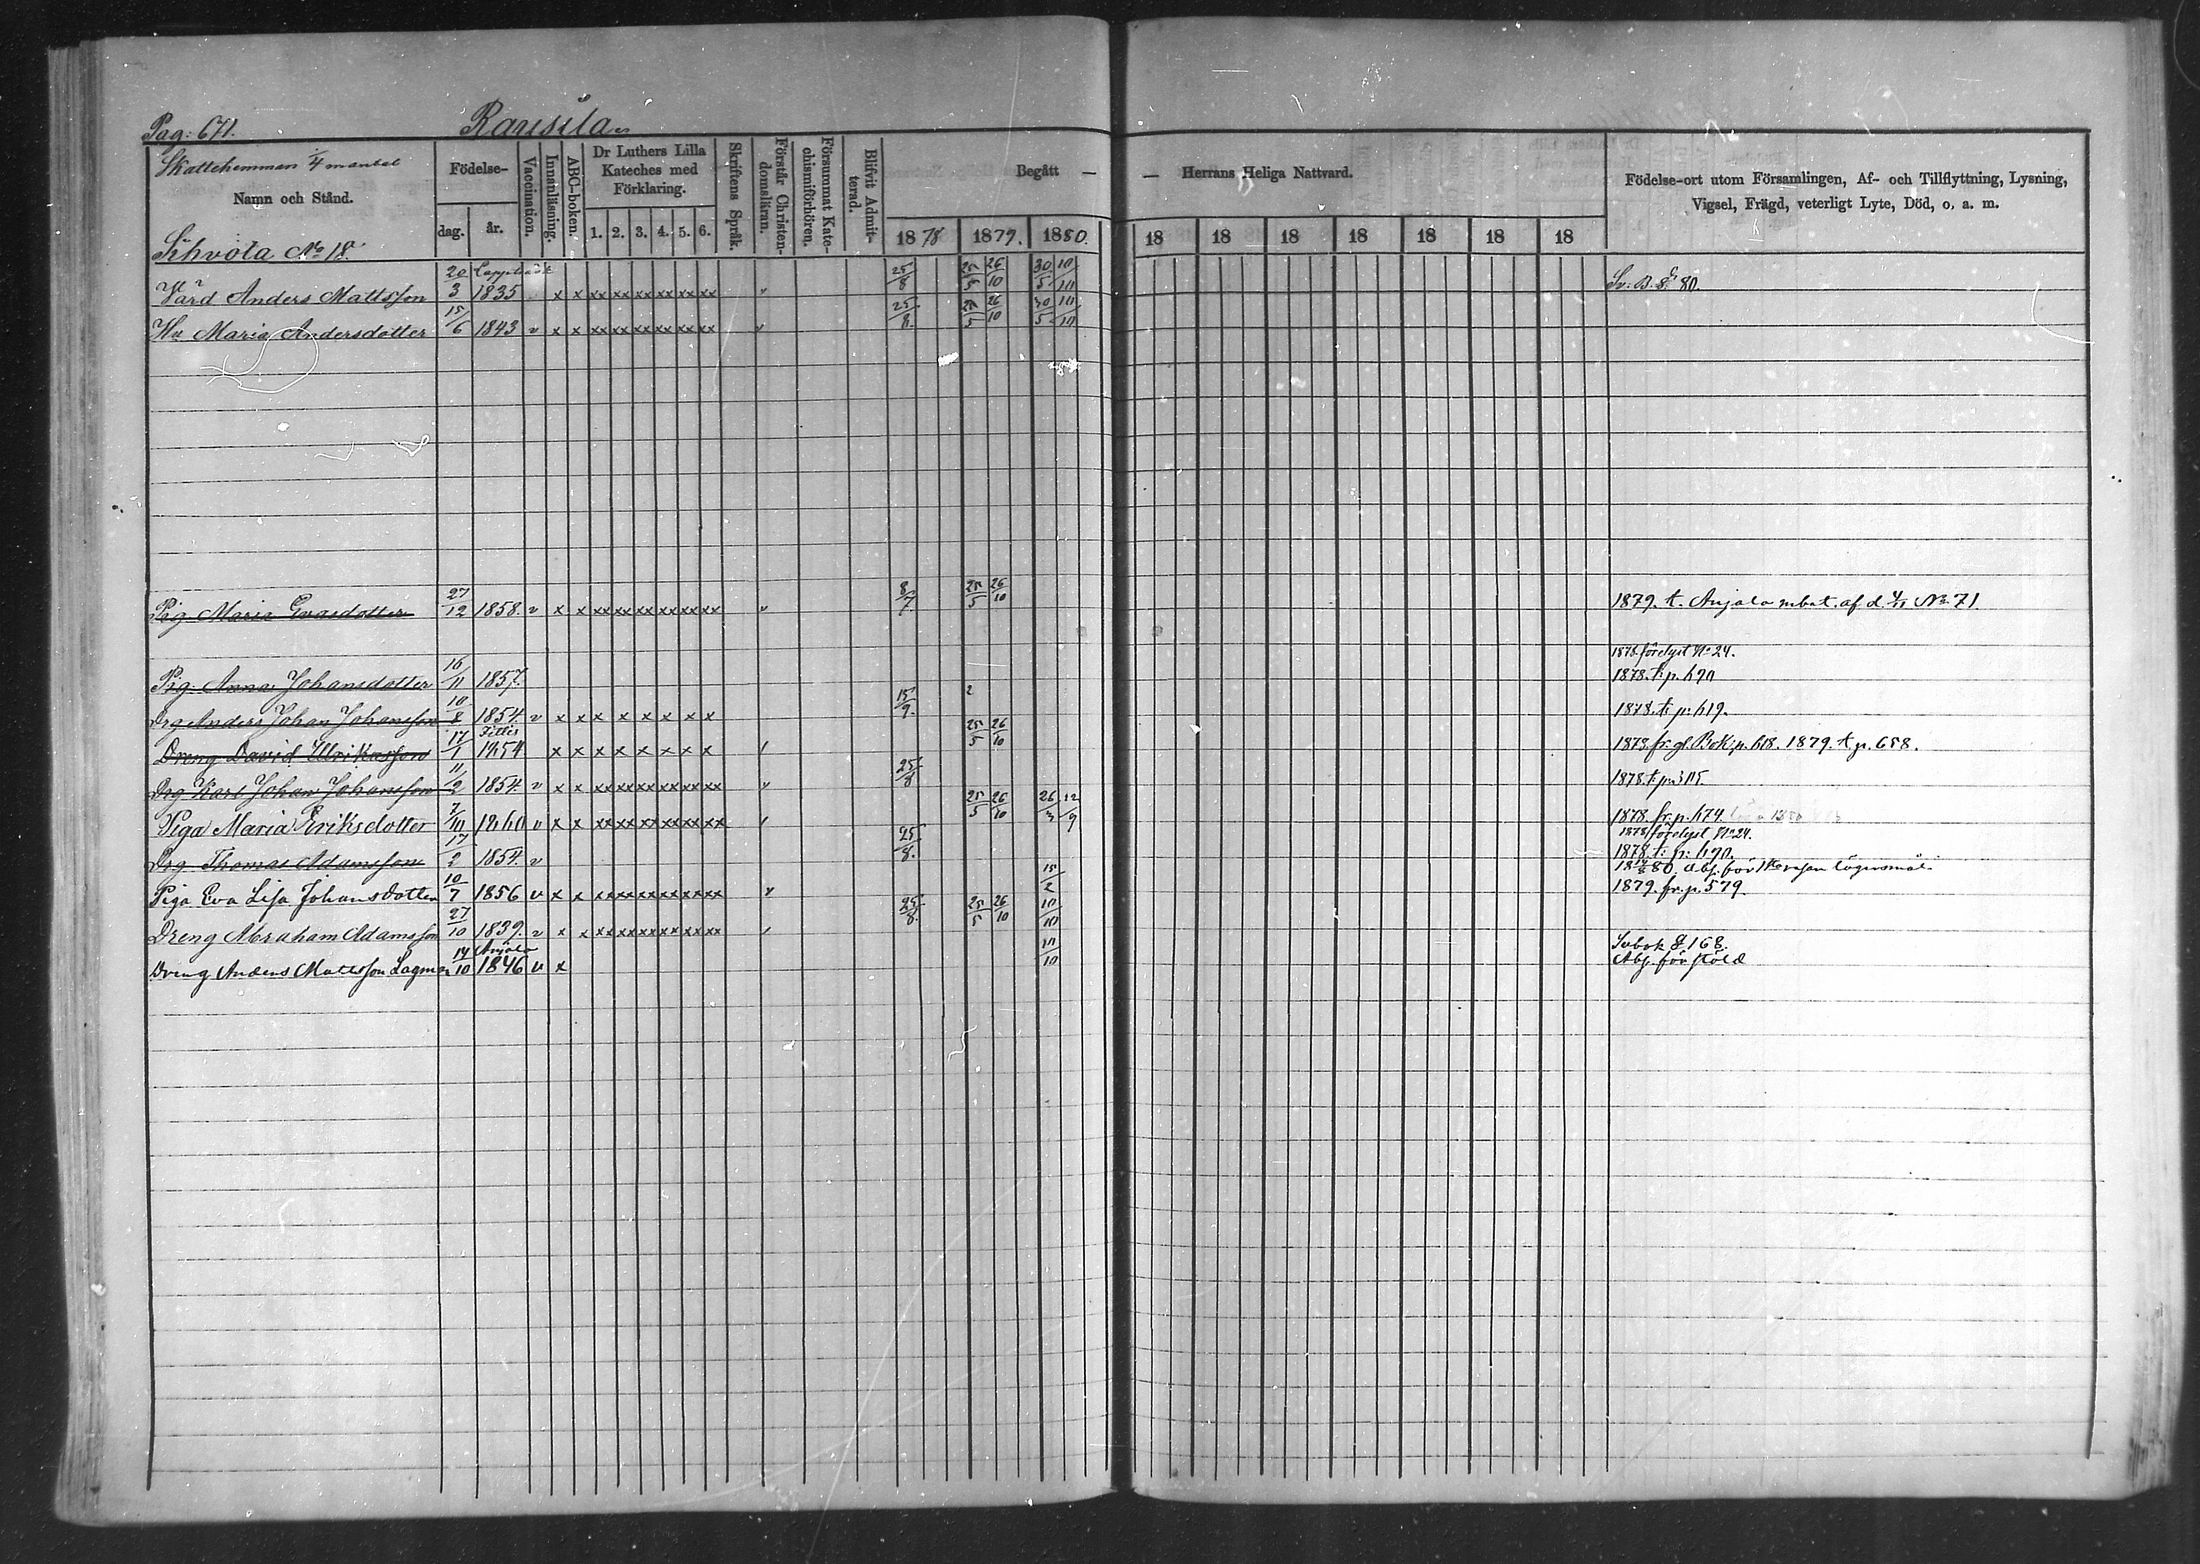 Pag: 671. Ransila
Skattehemman 1/4 mantal
Namn och Stånd.
Sihvola No 18.
Födelse-
dag. år.
Vaccination.
Innanläsning.
ABC-boken.
Dr Luthers Lilla Kateches med Förklaring.
1. 2. 3. 4. 5. 6.
Skriftens Språk.
Förstår Christendomsläran.
Försummat Katechismiförhören.
Blifvit Admitterad.
Begått — — Herrans Heliga Nattvard.
1878 1879. 1880. 18 18 18 18 18 18 18
Födelse-ort utom Församlingen, Af- och Tillflyttning, Lysning,
Vigsel, Frägd, veterligt Lyte, Död, o. a. m.
Värd Anders Mattsson 20/3 1835 x x xx xx xx xx xx xx 25/8 25/5 26/10 30/5 10/10
Hu Maria Andersdotter 15/6 1843 v x x xx xx xx xx xx xx 25/8. 25/5 26/10 30/5 10/10
Pig. Maria Evasdotter 27/12 1858. v x x xx xx xx xx xx xx 8/7. 25/5 26/10 1879. t. Anjala mbet. af d. No 71.
1878 förelyst No 24.
Pig. Anna Johansdotter 16/11 1857. 1878. t. p. 690
Drg Anders Johan Johansson 10/8 1854. v x x x x x x x x 15/9. 1878. t. p. 619.
Dreng David Ulrikasson 17/1 1854 x x x x x x x x 25/5 26/10 1878. fr. gl. Bok: p. 618. 1879. t. p. 658.
Drg Karl Johan Johansson 11/2 1854. v x x xx xx xx xx xx xx 25/8 1878. t. p.
Piga Maria Eriksdotter 7/10 1860 v x x xx xx xx xx xx xx 25/5 26/10 26/3 12/9 1878. fr. p. 674.
1878 förelyst No 24.
Drg. Thomas Adamsson 17/2 1854. v 25/8. 1878. t: p: 690.
Piga Eva Lisa Johansdotter 10/7 1856 v x x xx xx xx xx xx xx 15/2 80. Abs. för lägersmål
1879. fr. p. 579.
Dreng Abraham Adamsson 27/10 1839. v x x xx xx xx xx xx xx 25/8. 25/5 26/10 10/10
Dreng Anders Mattsson Lagman 14/10 Anjala 1846 v x 10/10 Svbok § 168.
Abs. för stöld